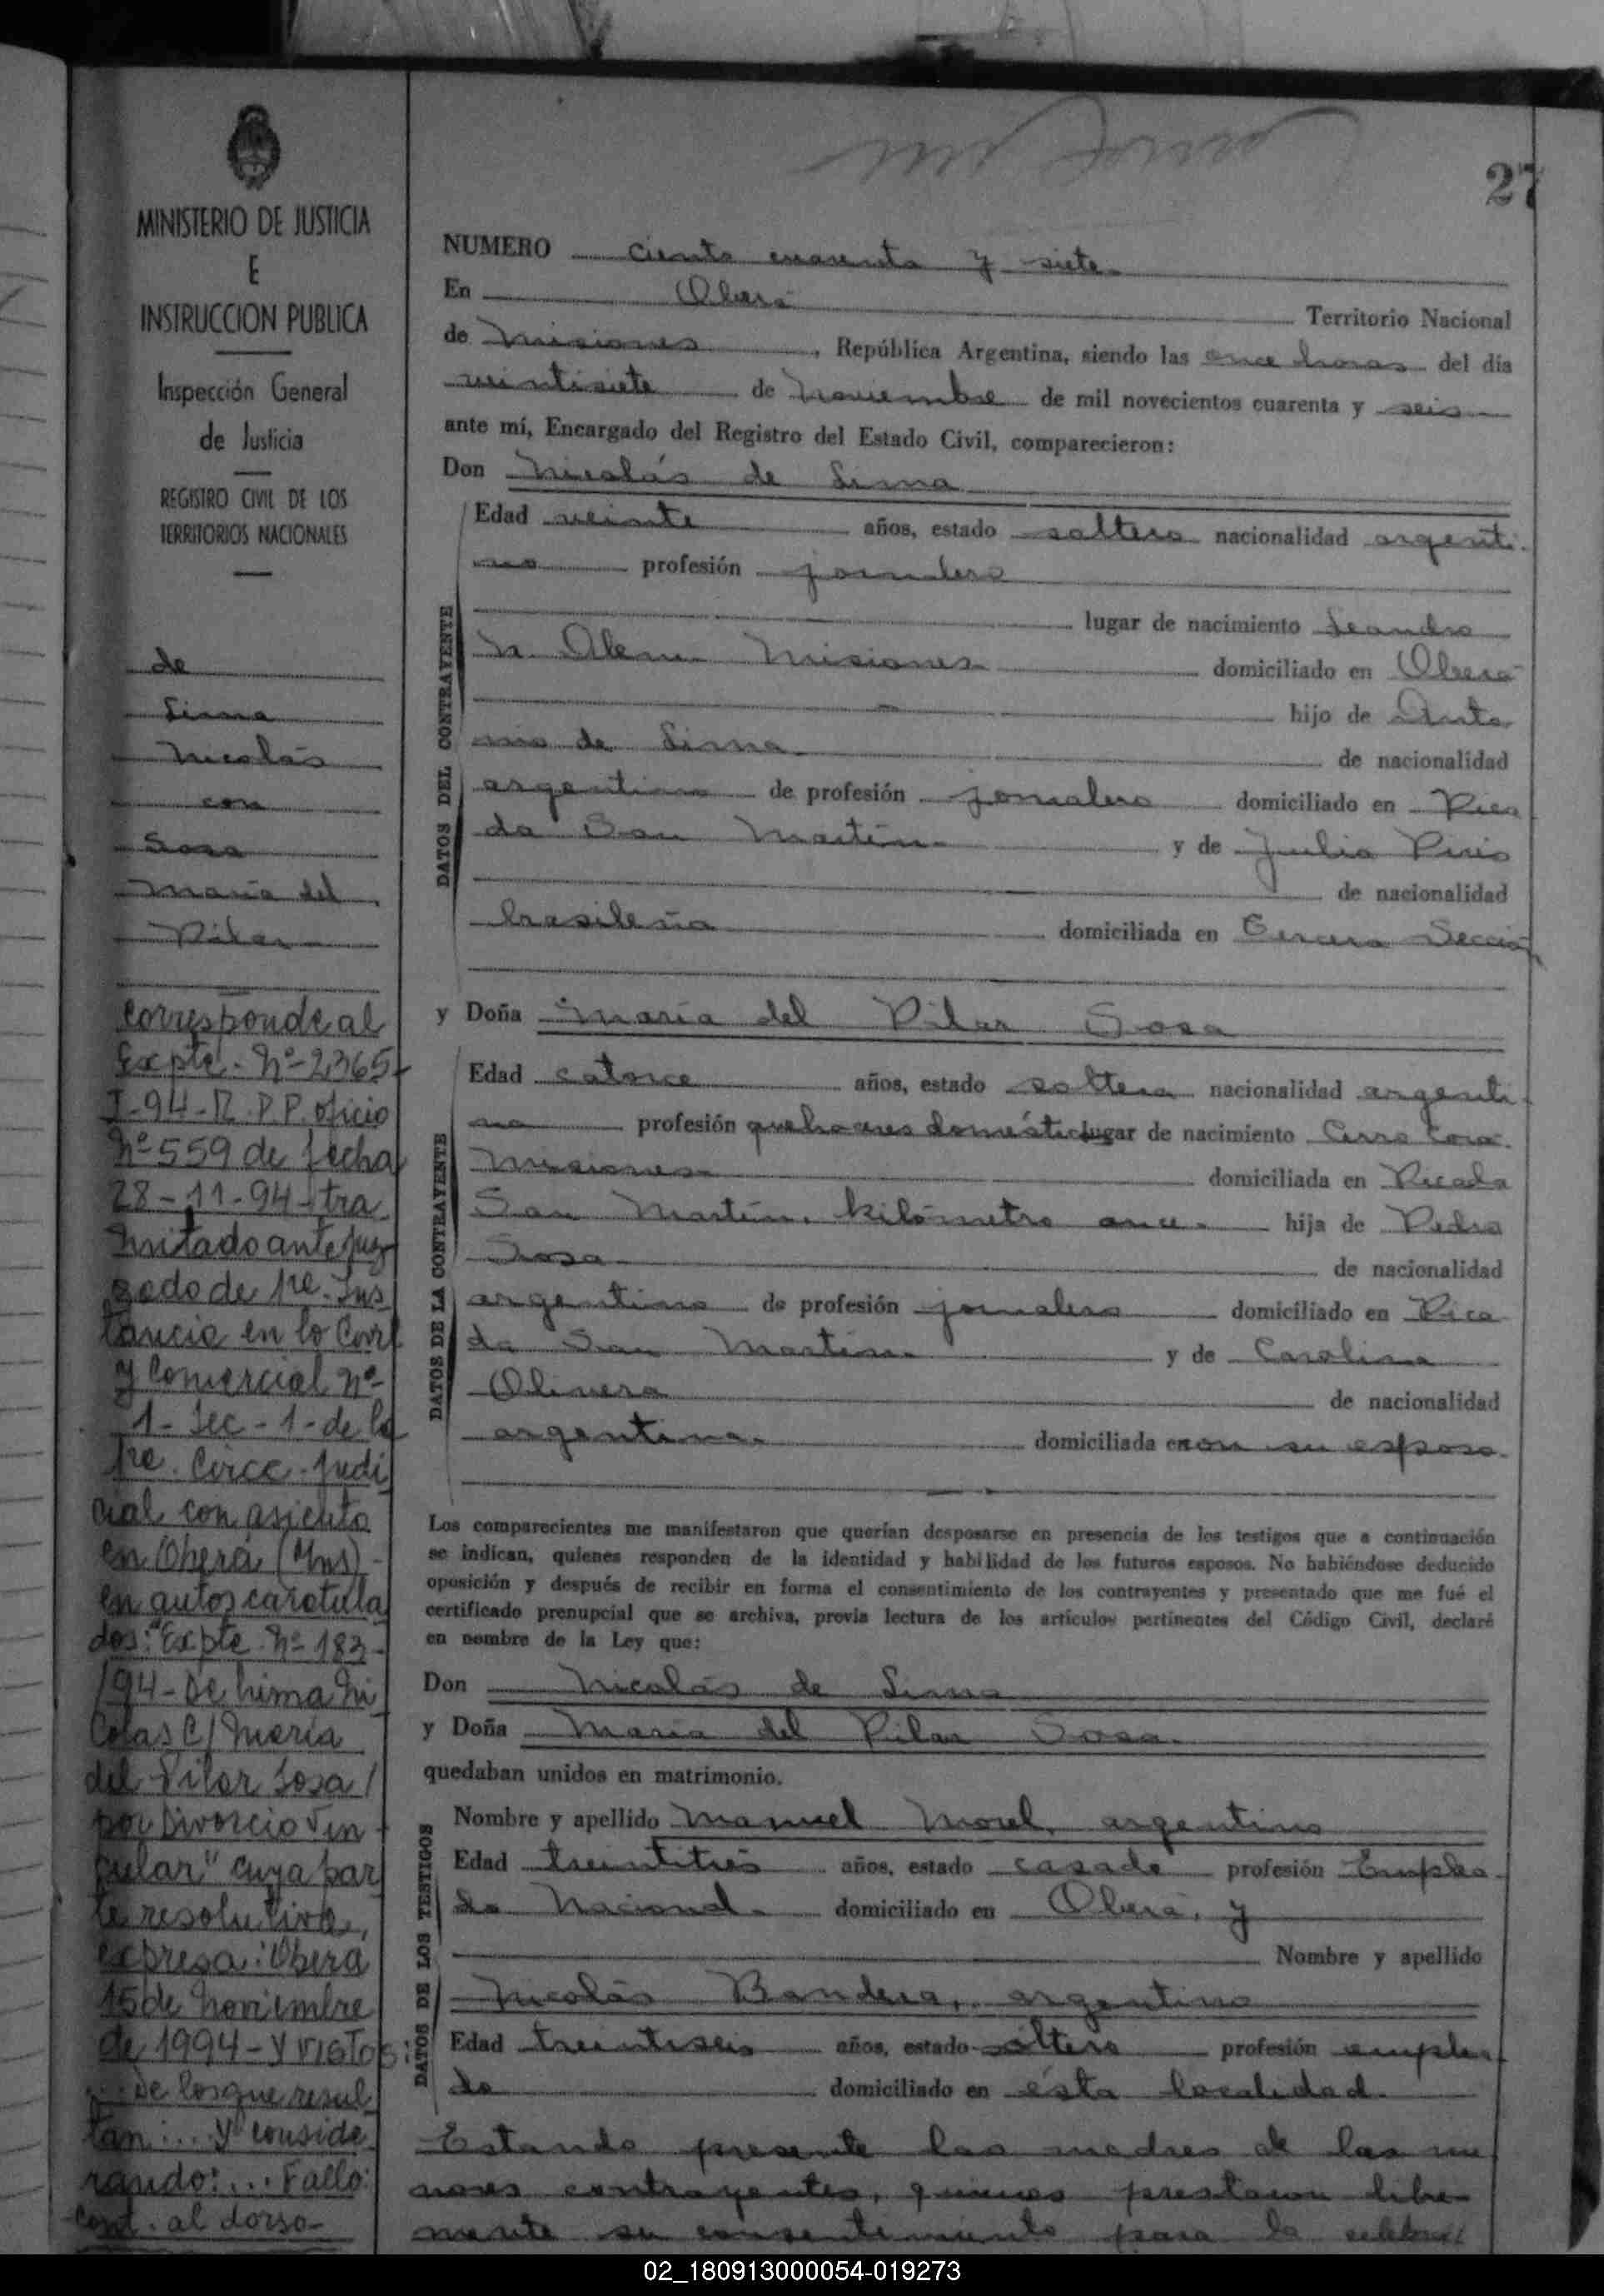 27
MINISTERIO DE JUSTICIA
E
INSTRUCCION PUBLICA
Inspección General
de Justicia
REGISTRO CIVIL DE LOS
TERRITORIOS NACIONALES
de
Lima
Nicolás
con
Sosa
María del
Pilar
corresponde al
Expte. Nº 2365-
I-94-R.P.P. oficio
Nº 559 de fecha
28-11-94-tra
mitado ante Juz
gado de 1re. Ins
tancia en lo Civil
y Comercial nº
1-Sec-1-de la
1re. Circc. Judi
cial con asiento
en Oberá (Mns)-
en autos caratula
dos: "Expte Nº 183-
/94-De Lima Ni
colas C/ María
del Pilar Sosa/
por Divorcio Vin
cular" cuya par
te resolutiva,
expresa: Oberá
15 de Noviembre
de 1994-Y VISTOS:
...De los que resul
tan:... Y conside
rando:... Fallo:
-cont. al dorso-
NUMERO ciento cuarenta y siete.
En Oberá Territorio Nacional
de Misiones, República Argentina, siendo las once horas del día
veintisiete de Noviembre de mil novecientos cuarenta y seis
ante mí, Encargado del Registro del Estado Civil, comparecieron:
Don Nicolás de Lima
DATOS DEL CONTRAYENTE
Edad veinte años, estado soltero nacionalidad argenti-
no profesión jornalero
lugar de nacimiento Leandro
N. Alem Misiones domiciliado en Oberá
hijo de Anto
nio de Lima de nacionalidad
argentino de profesión jornalero domiciliado en Pica
da San Martín y de Julia Piris
de nacionalidad
brasileña domiciliada en Tercera Sección
y Doña María del Pilar Sosa
DATOS DE LA CONTRAYENTE
Edad catorce años, estado soltera nacionalidad argenti-
na profesión quehaceres domésticos lugar de nacimiento Cerro Corá.
Misiones domiciliada en Picada
San Martín, kilómetro once. hija de Pedro
Sosa de nacionalidad
argentino de profesión jornalero domiciliado en Pica
da San Martín. y de Carolina
Olivera de nacionalidad
argentina. domiciliada en con su esposo.
Los comparecientes me manifestaron que querían desposarse en presencia de los testigos que a continuación
se indican, quienes responden de la identidad y habilidad de los futuros esposos. No habiéndose deducido
oposición y después de recibir en forma el consentimiento de los contrayentes y presentado que me fué el
certificado prenupcial que se archiva, previa lectura de los artículos pertinentes del Código Civil, declaré
en nombre de la Ley que:
Don Nicolás de Lima
y Doña María del Pilar Sosa.
quedaban unidos en matrimonio.
DATOS DE LOS TESTIGOS
Nombre y apellido Manuel Morel, argentino
Edad treintitrés años, estado casado profesión Emplea-
do Nacional. domiciliado en Oberá, y
Nombre y apellido
Nicolás Bandera, argentino
Edad treintiseis años, estado soltero profesión emplea-
do domiciliado en ésta localidad.
Estando presente las madres de los me
nores contrayentes, quienes prestaron libre
mente su consentimiento para la celebra
02_180913000054-019273